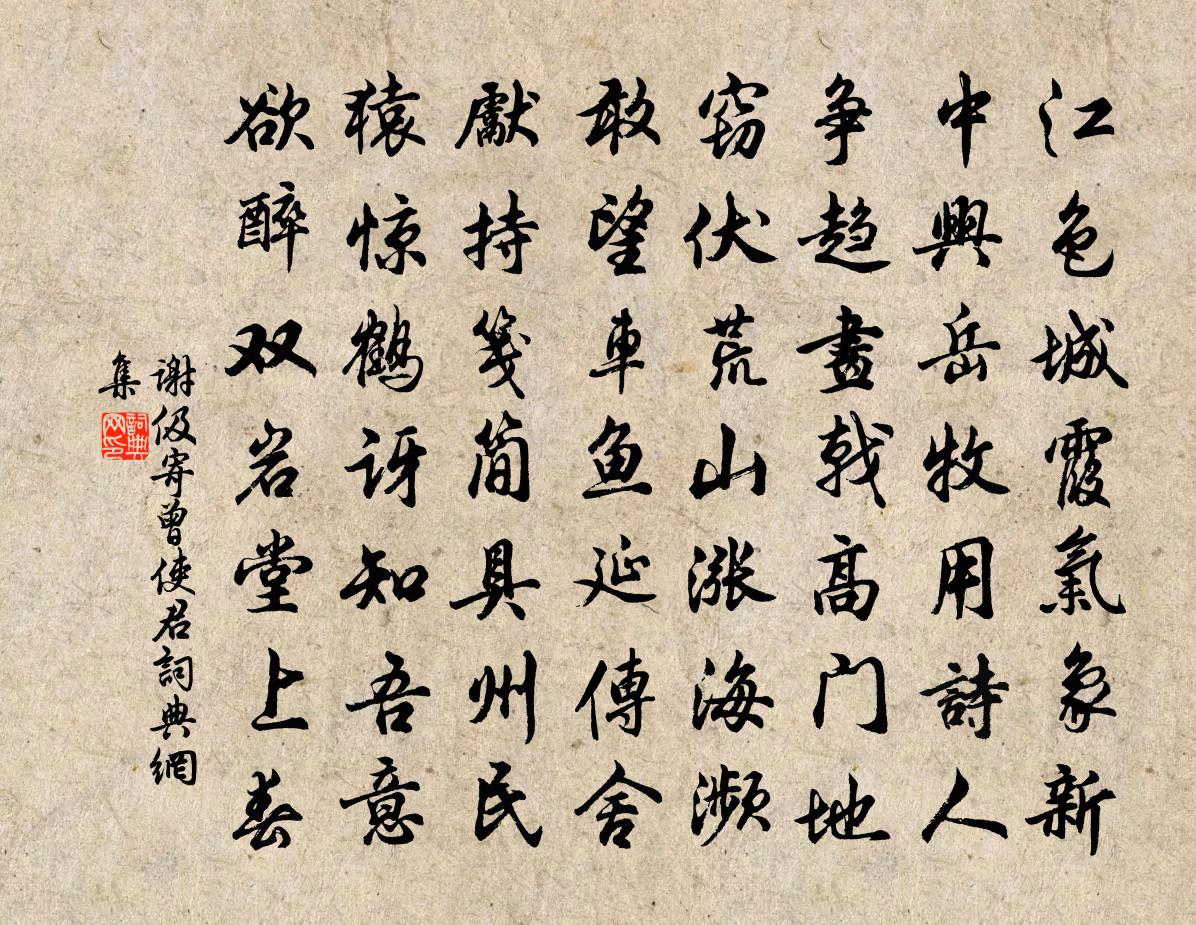 江色城霞氣象新
中興岳牧用詩人
争趋畫戟高门地
窃伏荒山漲海濒
敢望車鱼延傳舍
獻持笺简具州民
猿惊鶴讶知吾意
欲醉双岩堂上春
謝伋寄曾使君詞典網
集
詞典网印